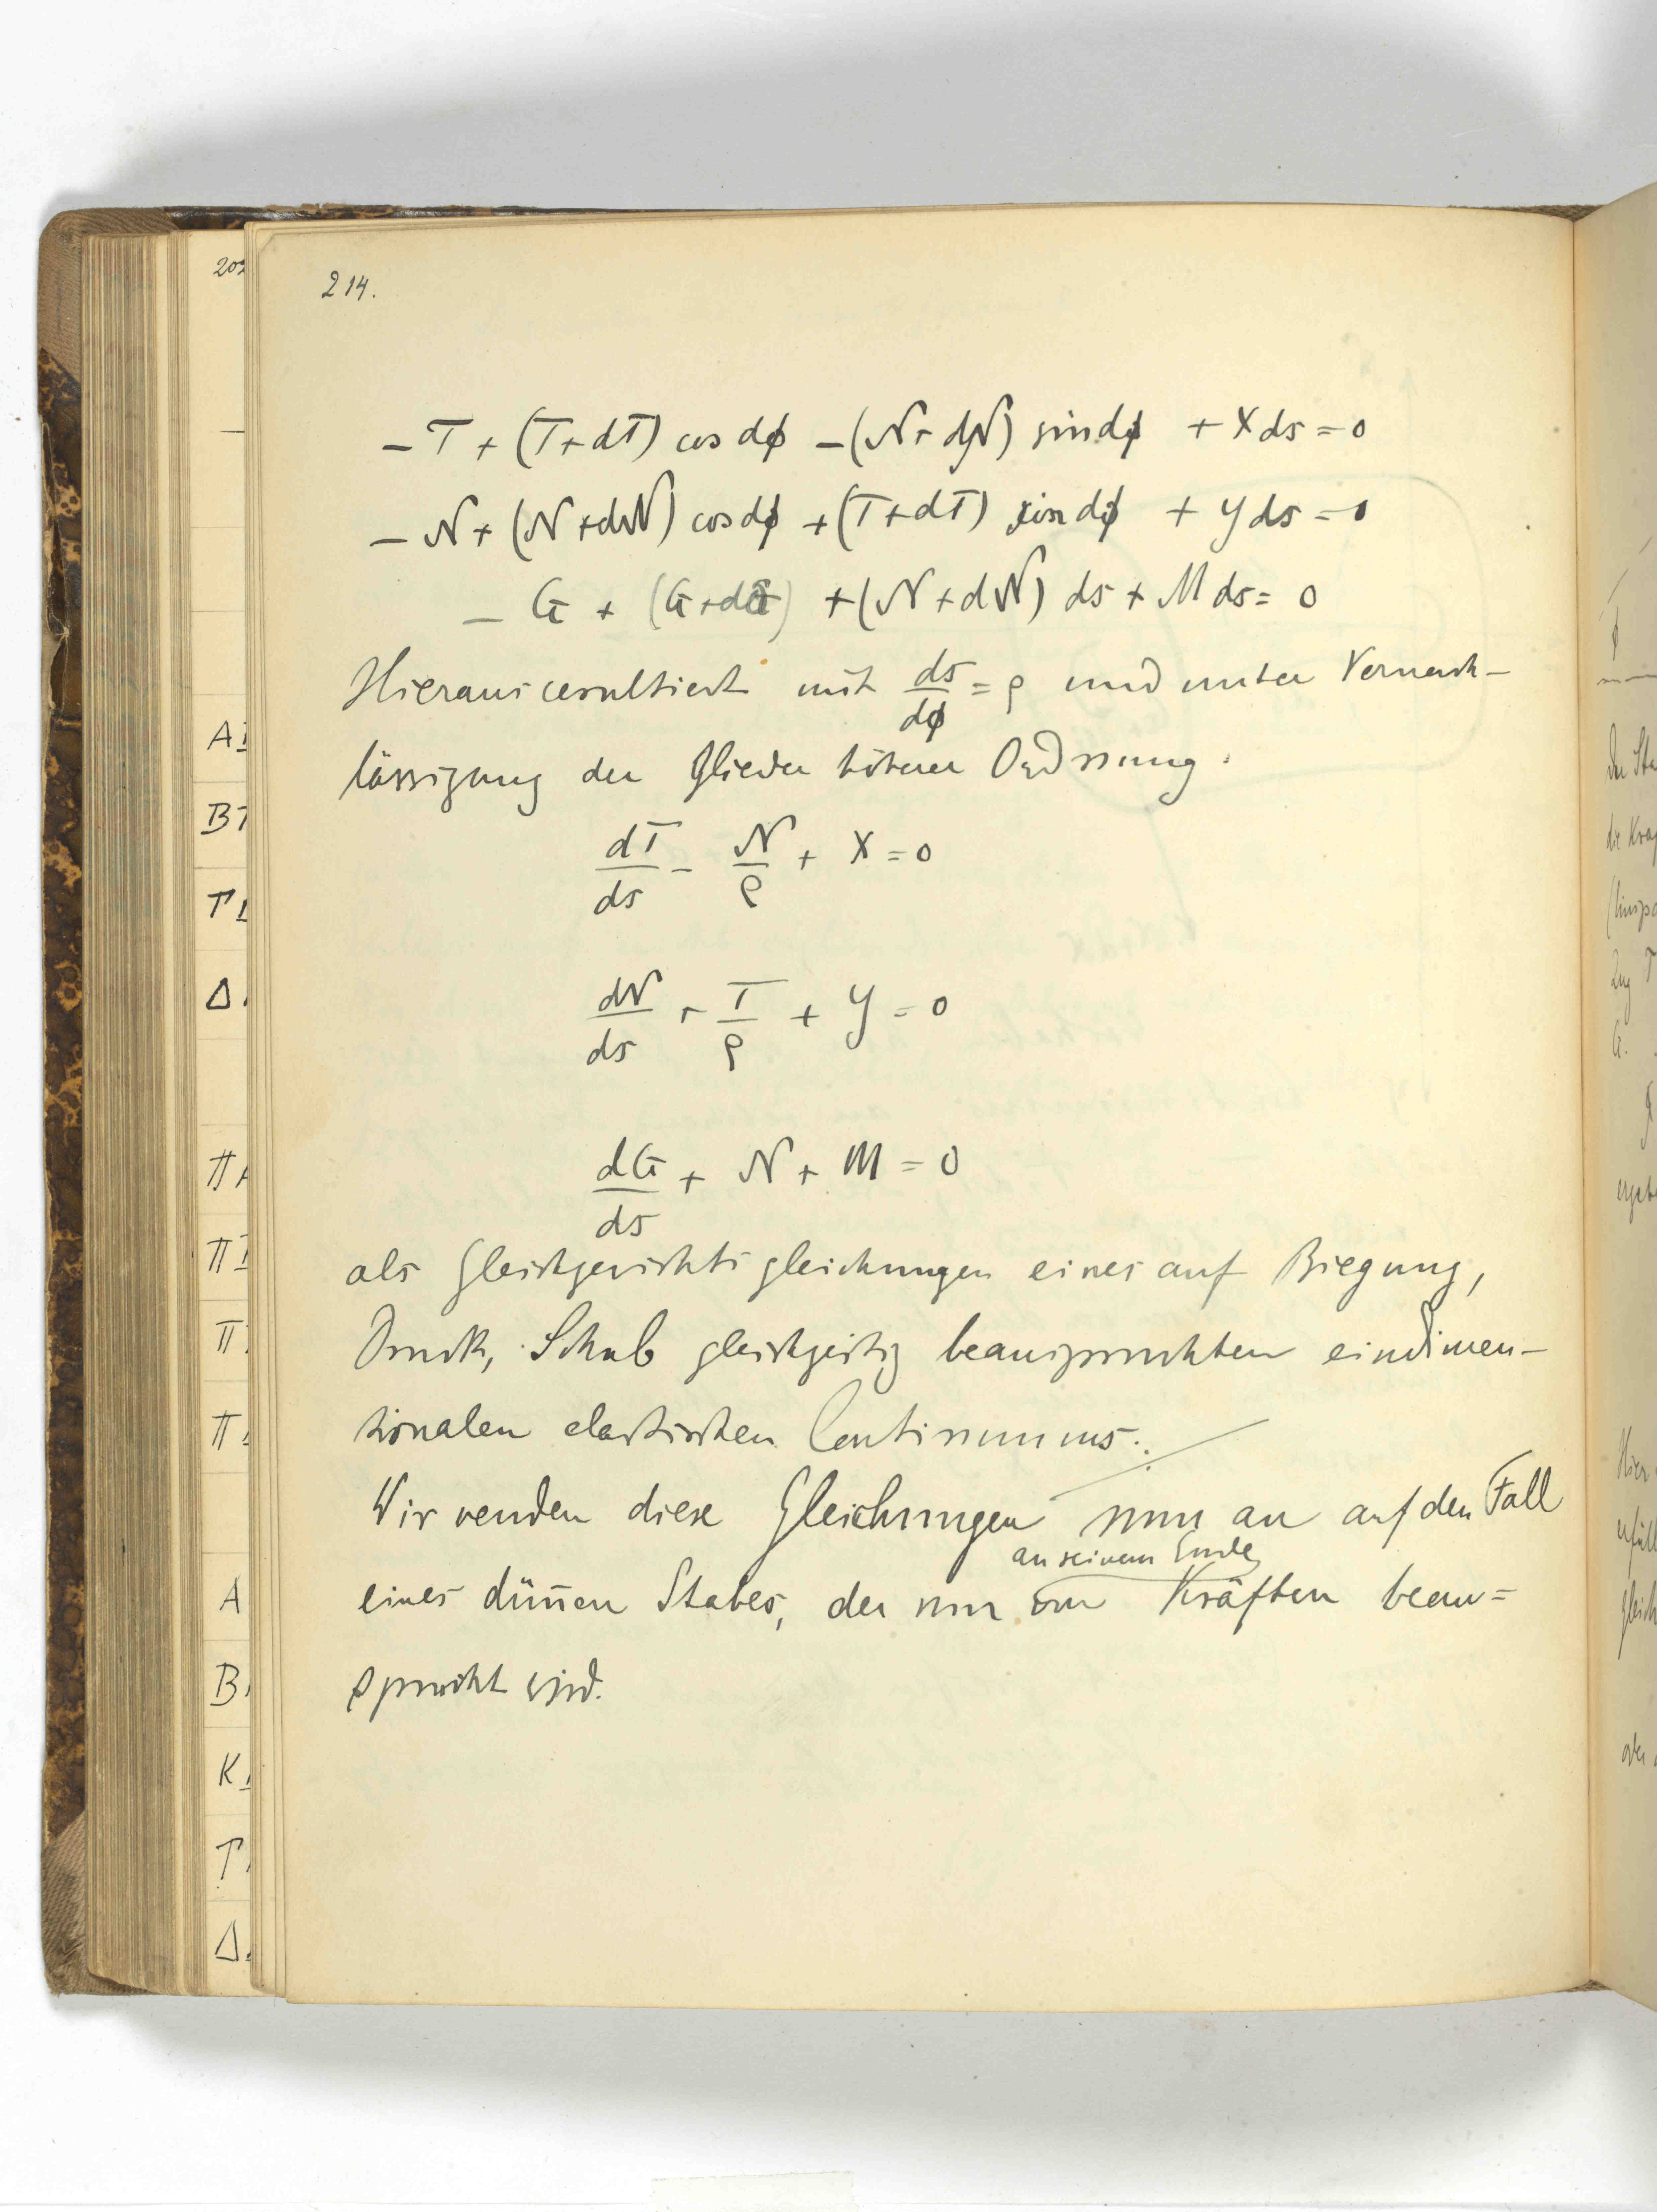 214.
− T + (T + dT) cos dφ − (N + dN) sin dφ + X ds = 0
− N + (N + dN) cos dφ + (T + dT) sin dφ + Y ds = 0
− G + (G + dG) + (N + dN) ds + M ds = 0
Hieraus resultiert mit ds/dφ = ρ und unter Vernach-
lässigung der Glieder höherer Ordnung.
dT/ds − N/ρ + X = 0
dN/ds + T/ρ + Y = 0
dG/ds + N + M = 0
als Gleichgewichtsgleichungen eines auf Biegung,
Druck, Schub gleichzeitig beanspruchten eindimen-
sionalen elastischen Continuums.
Wir wenden diese Gleichungen nun an auf den Fall
an seinem Ende
eines dün̄en Stabes, der nur von Kräften bean=
sprucht wird.
202
A
B
Γ
Δ.
Π
Π
Π
Π
A
B
K
Γ
Δ.